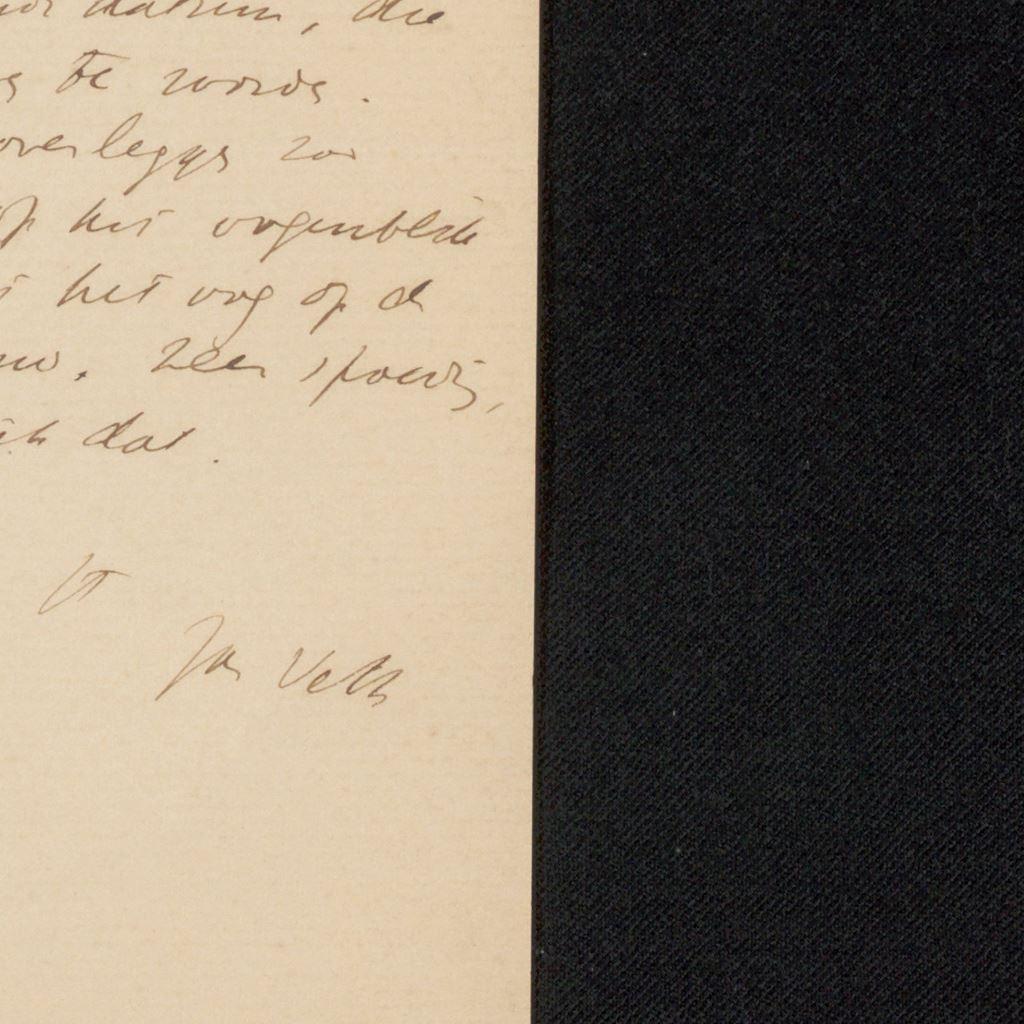 datum, die
te worden.
overleggen zoo
op het oogenblik
het oog op de
zeer spoedig,
ik dat.
tt
Jan Veth